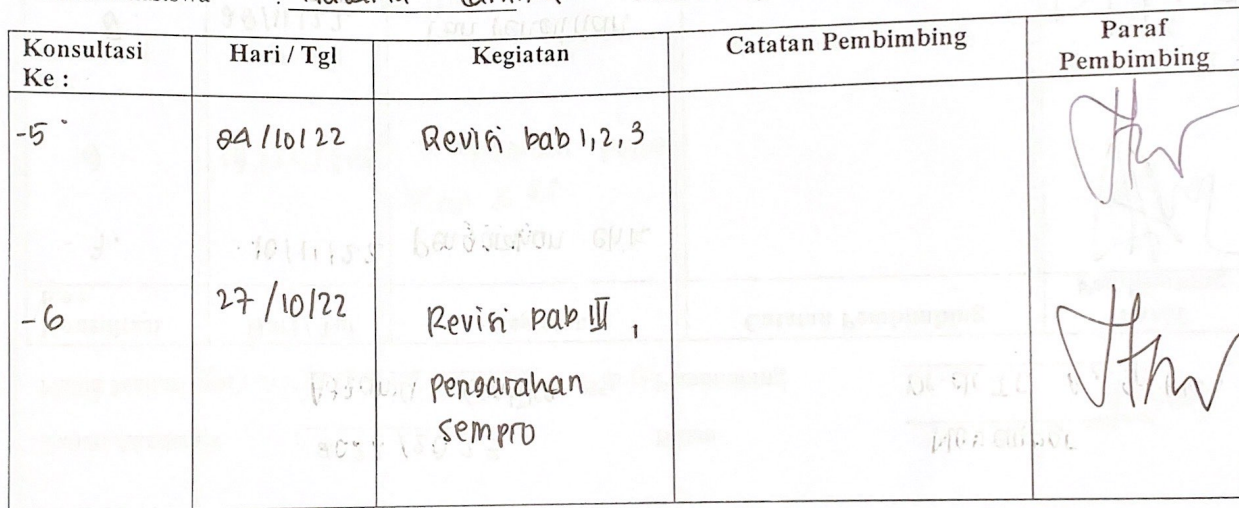 Konsultasi Ke :
Hari / Tgl
Kegiatan
Catatan Pembimbing
Paraf Pembimbing
-5
04/10/22
Revisi bab 1,2,3
-6
27/10/22
Revisi bab III,
pengarahan
sempro